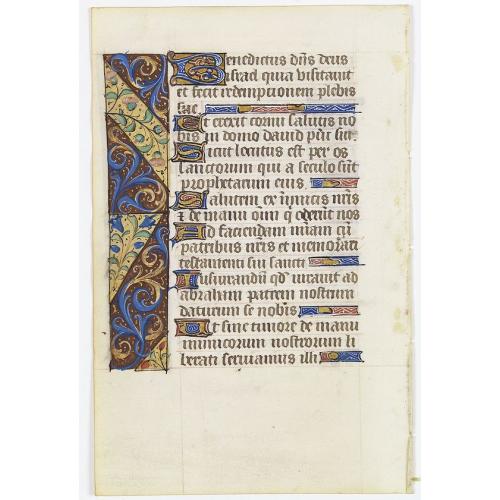 Benedictus dñs deus
israel quia visitavit
et fecit redemptionem plebis
sue
Et erexit cornu salutis no
bis in domo david
Sicut locutus est per os
sanctorum qui a seculo sunt
prophetarum eius
Salutem ex inimicis nr̃is
et de manu oĩm q̃ oderũt nos
Ad faciendam miam cũ
patribus nr̃is et memorari
testamenti sui sancti
Iusiurandũ qd̃ iuravit ad
abraham patrem nostrum
daturum se nobis
Ut sine timore de manu
inimicorum nostrorum li
berati serviamus illi